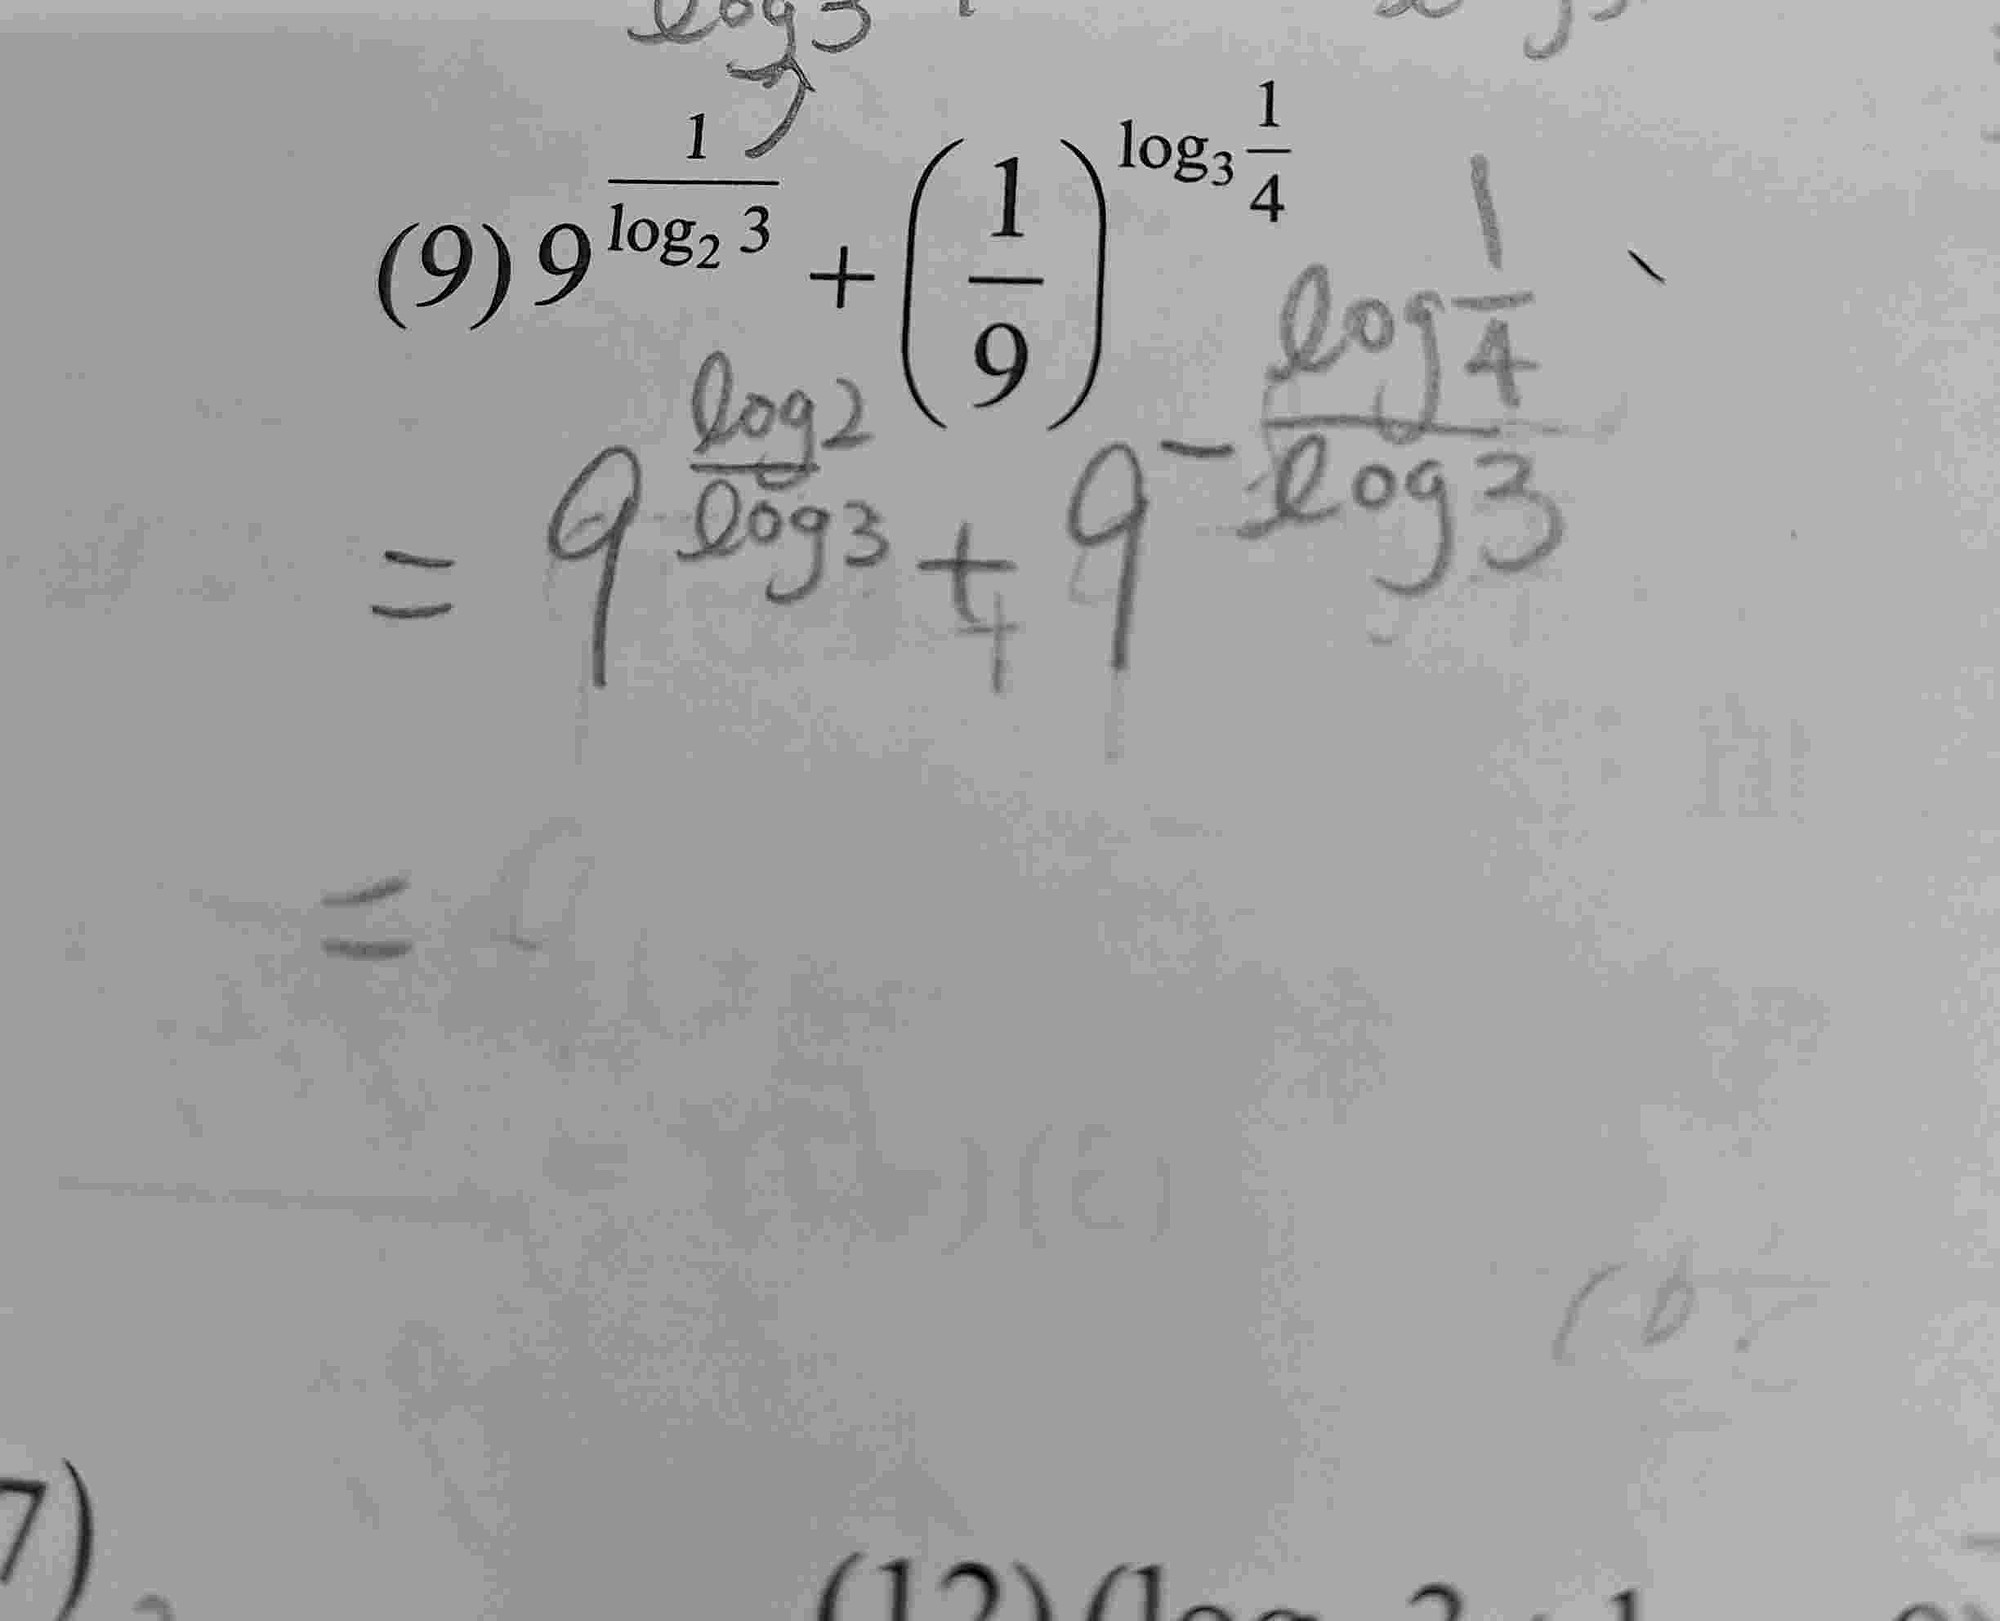 log3
(9) 9^(1/log₂ 3) + (1/9)^(log₃ 1/4)
= 9^(log2/log3) + 9^(-(log 1/4)/(log3))
=
7)
(12) (log